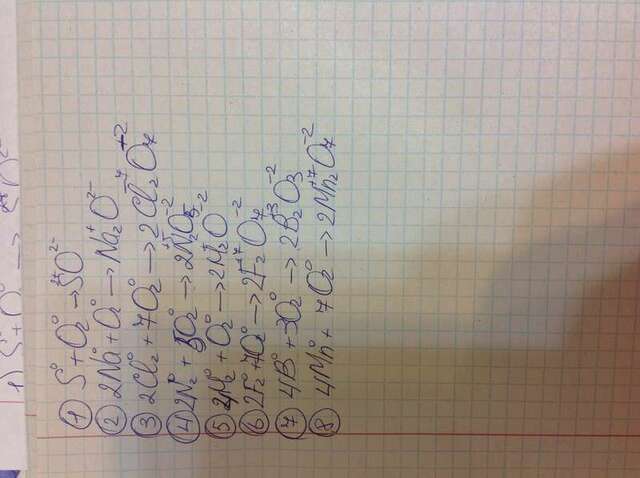 ① S⁰ + O₂⁰ → S²⁺O²⁻
② 2Na⁰ + O⁰ → Na₂⁺O²⁻
③ 2Cl₂⁰ + 7O₂⁰ → 2Cl₂⁺⁷O₇⁺²
④ 2N₂⁰ + 5O₂⁰ → 2N₂⁺⁵O₅⁻²
⑤ 2H₂⁰ + O₂⁰ → 2H₂⁺O⁻²
⑥ 2F₂⁰ + 7O₂⁰ → 2F₂⁺⁷O₇⁻²
⑦ 4B⁰ + 3O₂⁰ → 2B₂⁺³O₃⁻²
⑧ 4Mn⁰ + 7O₂⁰ → 2Mn₂⁺⁷O₇⁻²